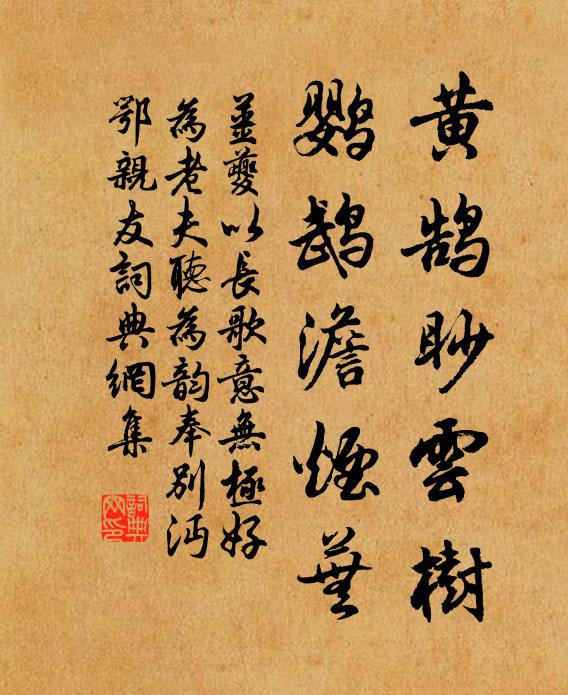 黄鹄眇雲樹
鹦鹉澹煙蕪
姜夔以長歌意無極好
為老夫聽為韵奉别沔
鄂親友詞典網集
詞典
网印